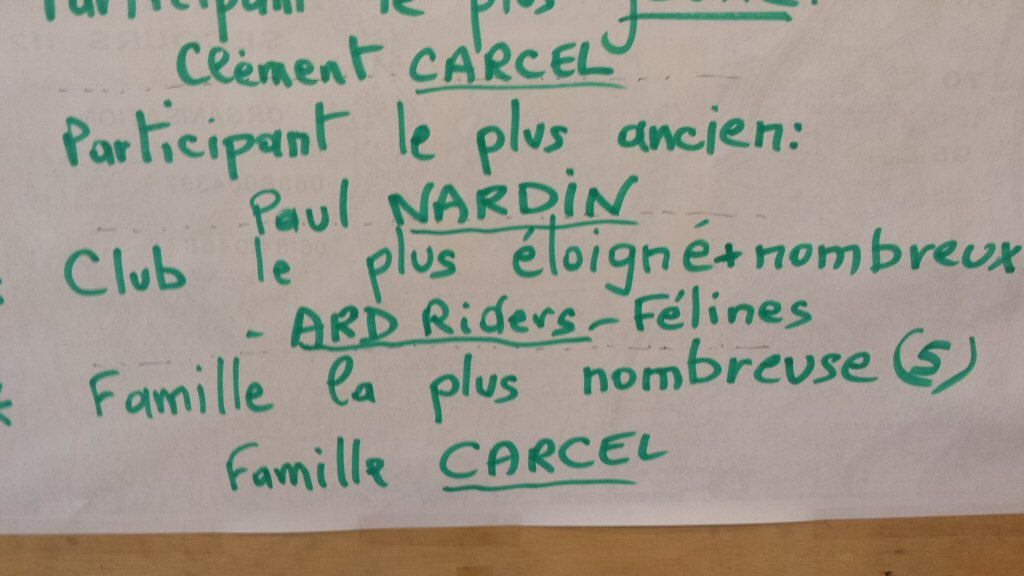 Participant le plus jeune:
Clément CARCEL
Participant le plus ancien:
Paul NARDIN
Club le plus éloigné + nombreux
- ARD Riders - Félines
Famille la plus nombreuse (5)
Famille CARCEL